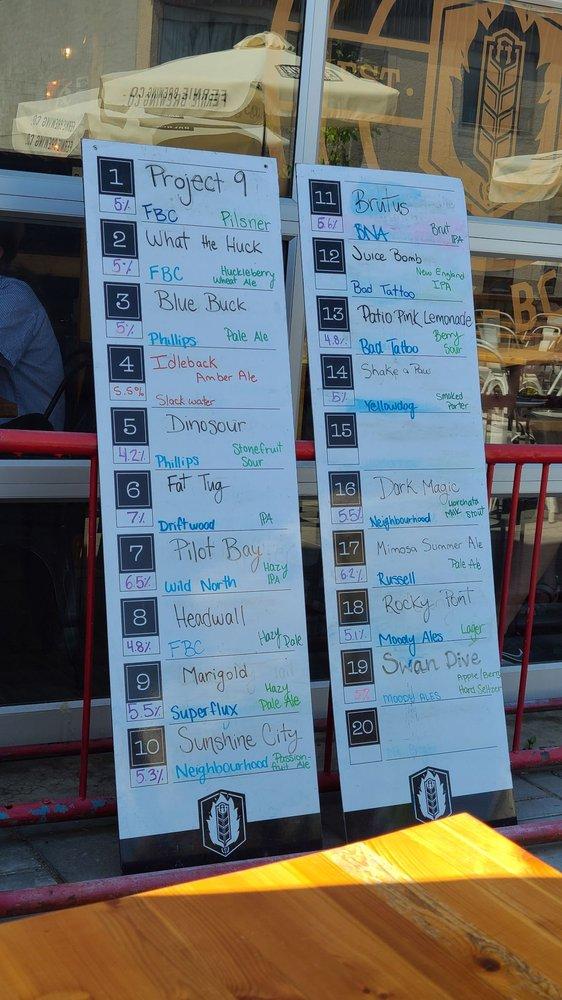 FERNIE BREWING CO.
EST.
1 Project 9
5% FBC Pilsner
2 What the Huck
5% FBC Huckleberry
Wheat Ale
3 Blue Buck
5% Phillips Pale Ale
4 Idleback
Amber Ale
5.5% Slackwater
5 Dinosour
4.2% Phillips Stonefruit
Sour
6 Fat Tug
7% Driftwood IPA
7 Pilot Bay
6.5% Wild North Hazy
IPA
8 Headwall
4.8% FBC Hazy Pale
9 Marigold
5.5% Superflux Hazy
Pale Ale
10 Sunshine City
5.3% Neighbourhood Passion-
fruit Ale
11 Brutus
5.6% BNA Brut
IPA
12 Juice Bomb
Bad Tattoo New England
IPA
13 Patio Pink Lemonade
4.8% Bad Tattoo Berry
Sour
14 Shake a Paw
5% Yellowdog Smoked
Porter
15
16 Dark Magic
5.5% Neighbourhood Horchata
Milk Stout
17 Mimosa Summer Ale
6.2% Russell Pale Ale
18 Rocky Point
5.1% Moody Ales Lager
19 Swan Dive
5% Moody Ales Apple/Berry
Hard Seltzer
20